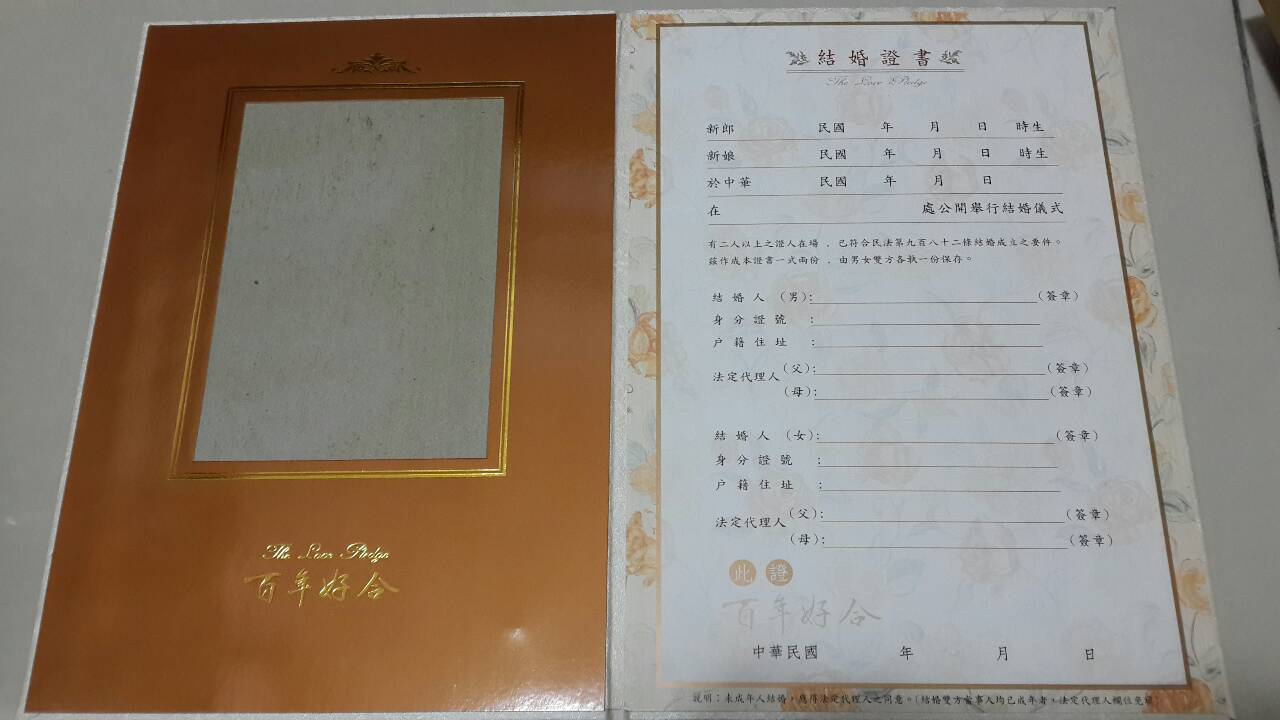 The Love Pledge
百年好合
結婚證書
The Love Pledge
新郎 民國 年 月 日 時生
新娘 民國 年 月 日 時生
於中華 民國 年 月 日
在 處公開舉行結婚儀式
有二人以上之證人在場，已符合民法第九百八十二條結婚成立之要件。
茲作成本證書一式兩份，由男女雙方各執一份保存。
結婚人（男）： （簽章）
身分證號：
戶籍住址：
法定代理人（父）： （簽章）
（母）： （簽章）
結婚人（女）： （簽章）
身分證號：
戶籍住址：
法定代理人（父）： （簽章）
（母）： （簽章）
此證
百年好合
中華民國 年 月 日
說明：未成年人結婚，應得法定代理人之同意。（結婚雙方當事人均已成年者，法定代理人欄位免填）